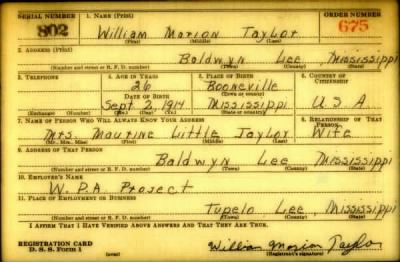 SERIAL NUMBER 1. NAME (Print) ORDER NUMBER
802 William Marion Taylor 675
(First) (Middle) (Last)
2. ADDRESS (Print)
Baldwyn Lee Mississippi
(Number and street or R. F. D. number) (Town) (County) (State)
3. TELEPHONE 4. AGE IN YEARS 5. PLACE OF BIRTH 6. COUNTRY OF CITIZENSHIP
26 Booneville
DATE OF BIRTH (Town or county)
Sept 2, 1914 Mississippi U.S.A
(Exchange) (Number) (Mo.) (Day) (Yr.) (State or country)
7. NAME OF PERSON WHO WILL ALWAYS KNOW YOUR ADDRESS 8. RELATIONSHIP OF THAT PERSON
Mrs. Maurine Little Taylor Wife
(Mr., Mrs., Miss) (First) (Middle) (Last)
9. ADDRESS OF THAT PERSON
Baldwyn Lee Mississippi
(Number and street or R. F. D. number) (Town) (County) (State)
10. EMPLOYER'S NAME
W.P.A Project
11. PLACE OF EMPLOYMENT OR BUSINESS
Tupelo Lee, Mississippi
(Number and street or R. F. D. number) (Town) (County) (State)
I AFFIRM THAT I HAVE VERIFIED ABOVE ANSWERS AND THAT THEY ARE TRUE.
REGISTRATION CARD
D. S. S. Form 1 (over) William Marion Taylor
(Registrant's signature)